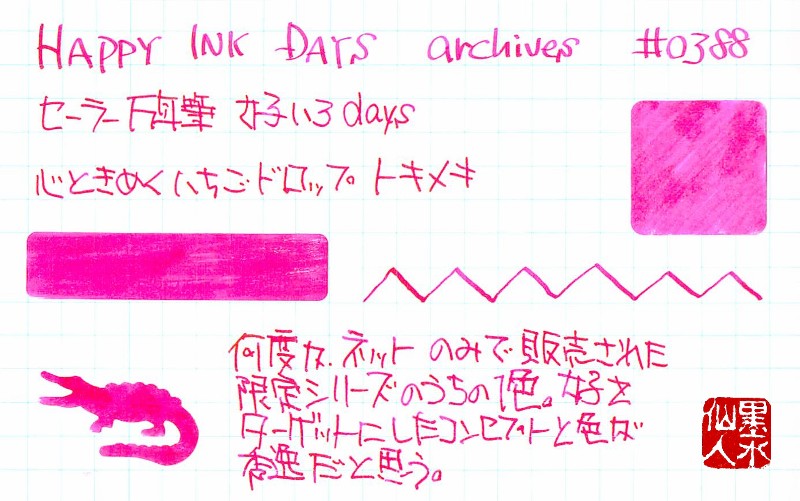 HAPPY INK DAYS archives #0388
セーラー万年筆 女子いろdays
心ときめくいちごドロップ トキメキ
何度か ネットのみで販売された
限定シリーズのうちの1色。女子を
ターゲットにしたコンセプトと色が
秀逸だと思う。
墨水
仙人